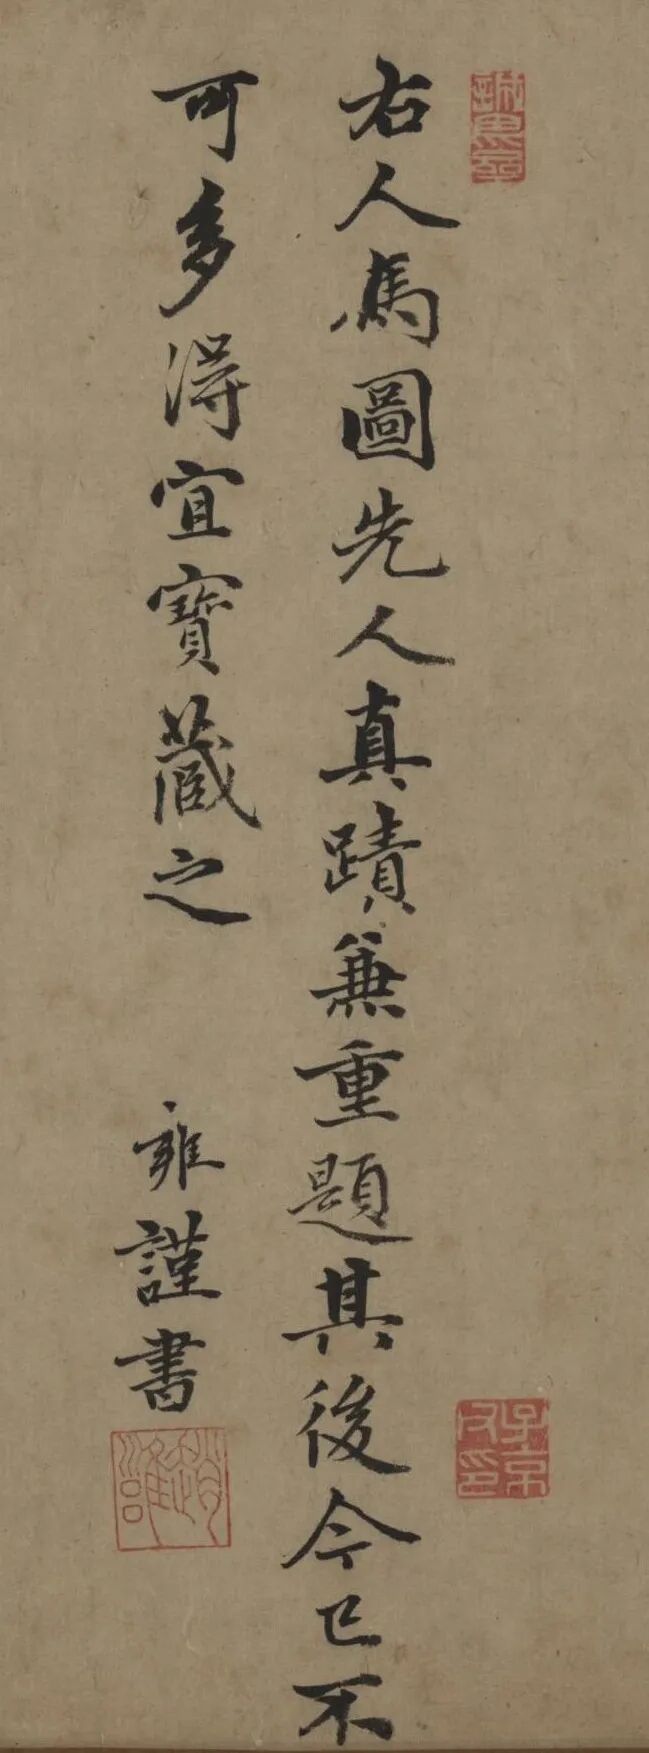 右人馬圖先人真蹟兼重題其後今已不
可多得宜寶藏之
雍謹書
趙雍
子京父印